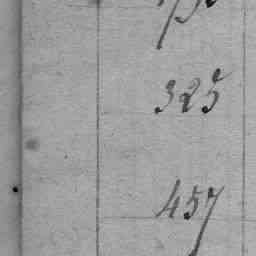 325
457